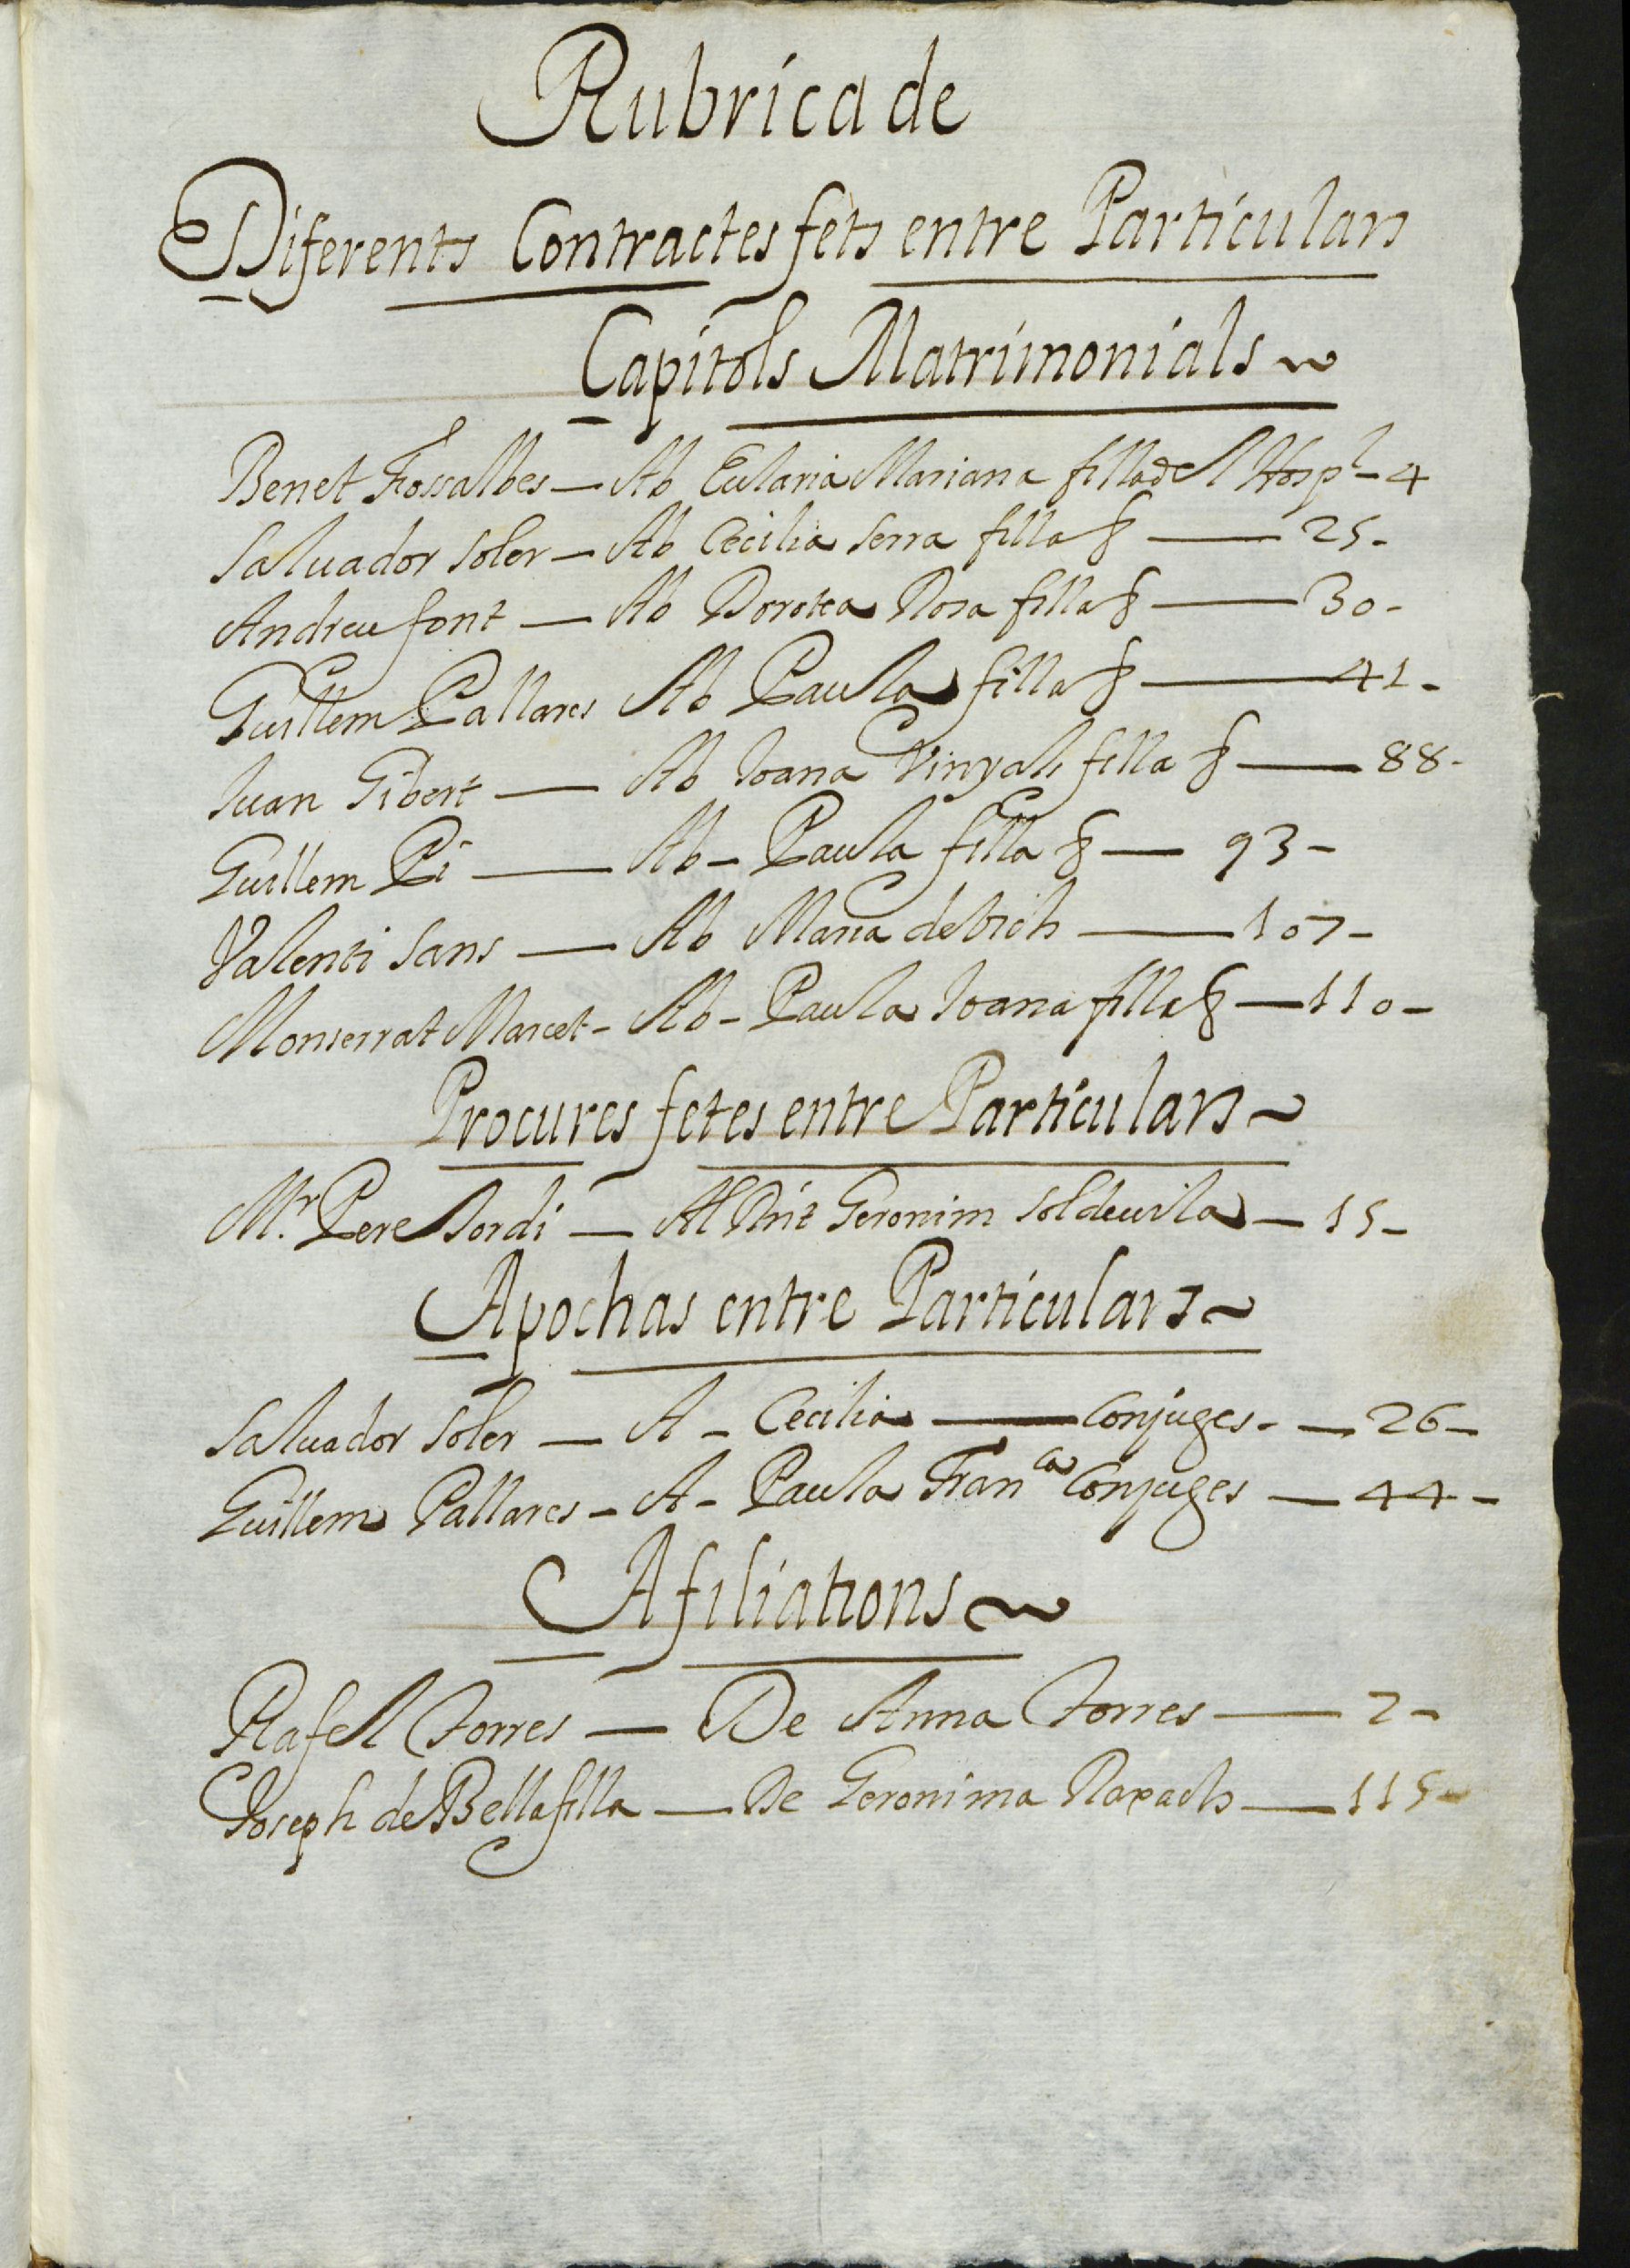 Rubrica de
Diferents Contractes fets entre Particulars
Capitols Matrimonials
Benet Fossalbes — Ab Eularia Mariana filla del Hospl - 4
Saluador Soler — Ab Cecilia Serra filla — 25 -
Andreu font — Ab Dorotea Rosa filla — 30 -
Guillem Pallares Ab Paula filla — 41 -
Iuan Gibert — Ab Ioana Vinyals filla — 88 -
Guillem Pi — Ab - Paula filla — 93 -
Valenti Sans — Ab Maria — 107 -
Monserrat Marcet - Ab - Paula Ioana filla — 110 -
Procures fetes entre Particulars
Mr. Pere Jordi — Al Geronim Soldeuila — 15 -
Apochas entre Particulars
Saluador Soler — A - Cecilia — Conjuges - — 26 -
Guillem Pallares - A - Paula Franca Conjuges — 44 -
Afiliations
Rafel Torres — De Anna Torres — 2 -
Joseph de Bellafilla — De Geronima — 115 -